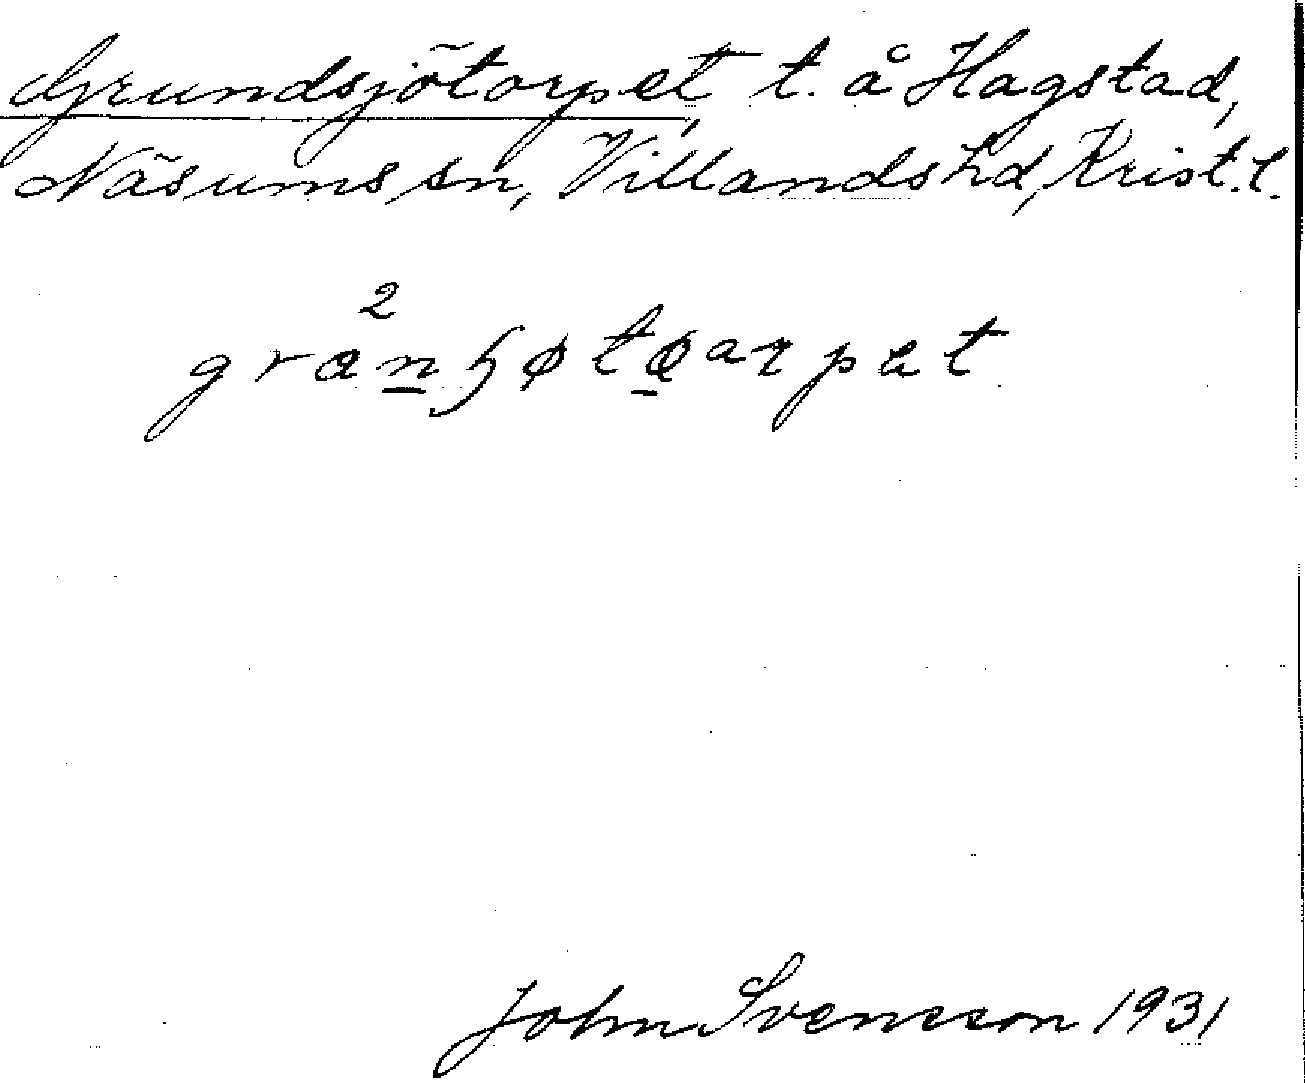 Grundsjötorpet, t. å Hagstad,
Näsums sn, Villands hd, Krist. l.
2
John Svensson 1931